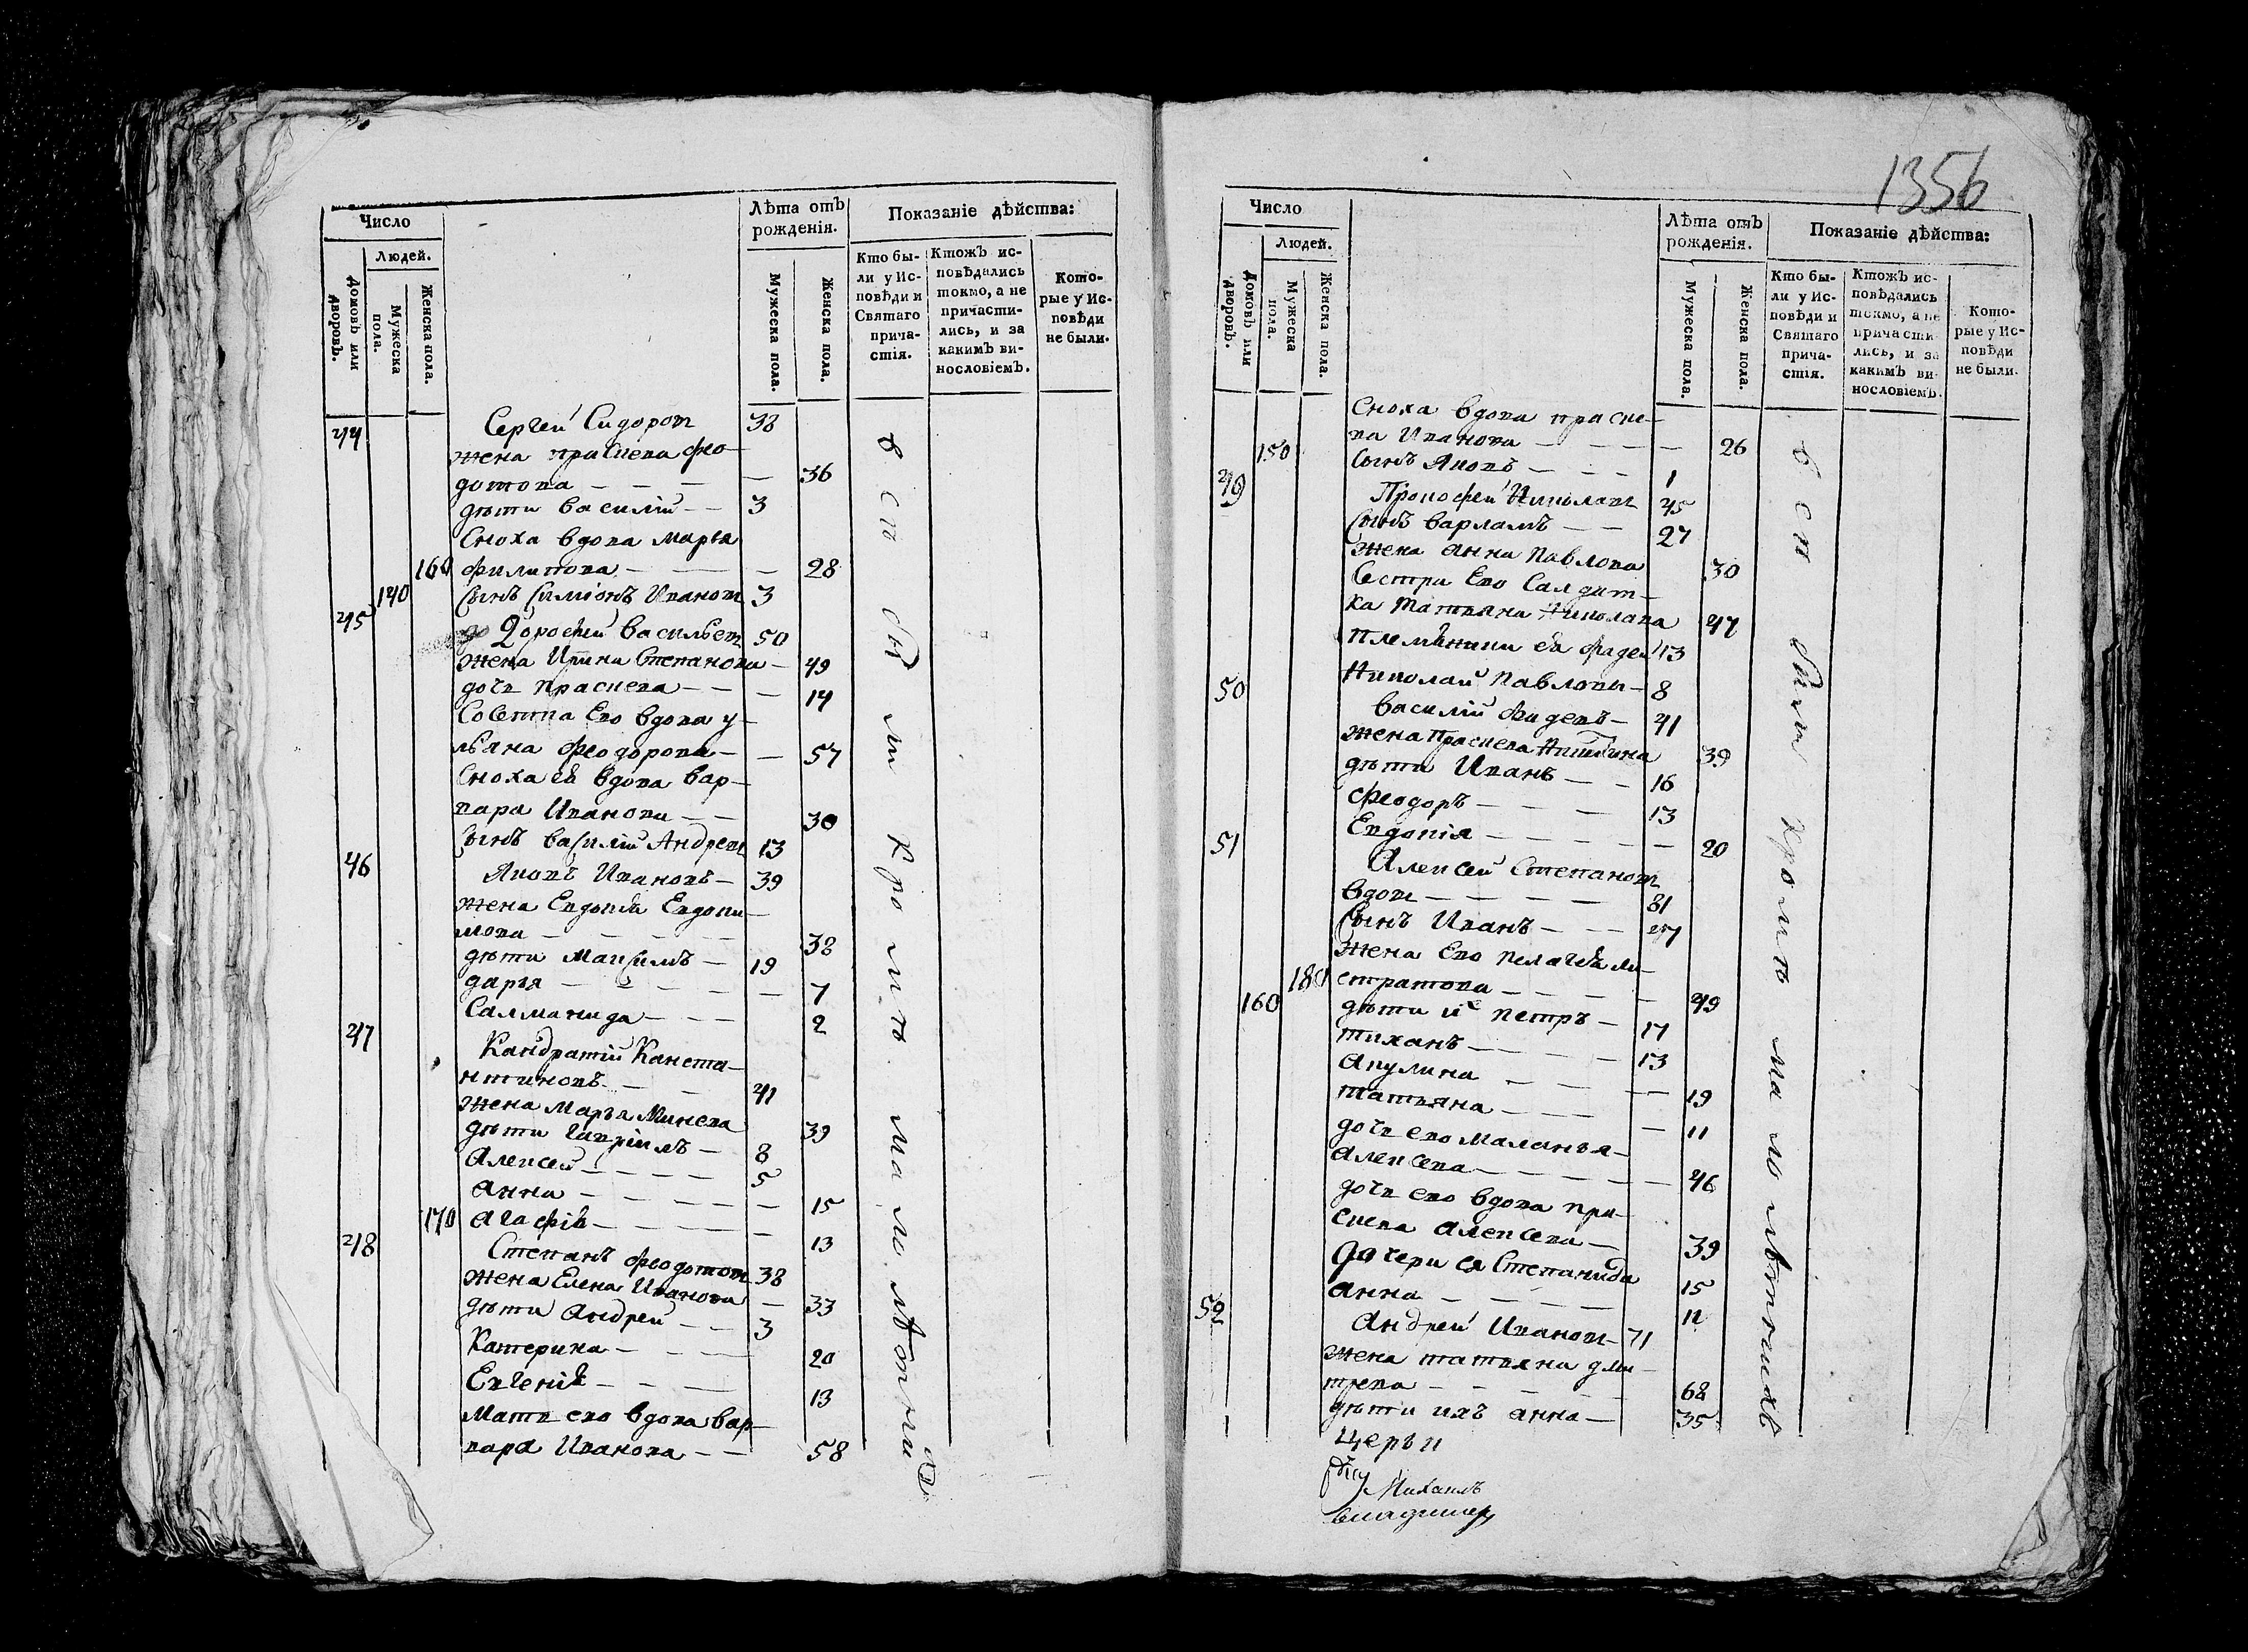 1356
Число
Людей.
Домовъ или дворовъ.
Мужеска пола.
Женска пола.
Лѣта отъ рожденія.
Мужеска пола.
Женска пола.
Показаніе дѣйства:
Кто бы-
ли у Ис-
повѣди и
Святаго
прича-
стія.
Ктожъ ис-
повѣдались
токмо, а не
причасти-
лись, и за
какимъ ви-
нословіемъ.
Кото-
рые у Ис-
повѣди
не были.
44 Сергей Сидоровъ 38
жена праскева фео-
дотова — — — — 36
дѣти василій — — 3
Сноха вдова марья
160 филипова — — — 28
140 Сынъ Симіонъ Ивановъ 3
45 Дорофей васильевъ 50
жена Ирина Степанова — 49
дочь праскева — — — 14
вдова у-
льяна феодорова — — 57
Сноха ея вдова вар-
вара Иванова — — 30
Сынъ василій Андреевъ 13
46 Яковъ Ивановъ — 39
жена Евдокія Евдоки-
мова — — — — 38
дѣти Максимъ — 19
дарья — — — — 7
Салманида — — — 2
47 Кандратій Канста-
нтиновъ — — — 41
жена марья Минеева 39
дѣти гавріилъ — 8
Алексей — — — — 5
анна — — — — — 15
170 агафія — — — — — 13
48 Степанъ феодотовъ 38
жена Елена Иванова — 33
дѣти андрей — — 3
Катерина — — — 20
Евгенія — — — 13
мать ево вдова вар-
вара Иванова — — 58
всѣ были кромѣ малолѣтныхъ
Число
Людей.
Домовъ или дворовъ.
Мужеска пола.
Женска пола.
Лѣта отъ рожденія.
Мужеска пола.
Женска пола.
Показаніе дѣйства:
Кто бы-
ли у Ис-
повѣди и
Святаго
прича-
стія.
Ктожъ ис-
повѣдались
токмо, а не
причасти-
лись, и за
какимъ ви-
нословіемъ.
Кото-
рые у Ис-
повѣди
не были.
Сноха вдова праске-
ва Иванова — — — — 26
150 Сынъ Яковъ — — — 1
49 Прокофей Николаевъ 45
Сынъ варламъ — — 27
жена анна павлова 30
Сестра Ево Салдат-
ка татьяна Николаева 47
племянники ея фадей 13
Николай павловы — 8
50 василій фадевъ — 41
жена праскева Никитина 39
дѣти Иванъ — — 16
феодоръ — — — 13
Евдокія — — — — 20
51 Алексей Степановъ
вдовъ — — — — 81
Сынъ Иванъ — — — 47
жена Ево пелагея ли-
180 стратова — — — — 49
160 дѣти их петръ — 17
тиханъ — — — — 13
акулина — — — — 19
татьяна — — — — 11
дочь ево маланья —
алексева — — — — 46
дочь ево вдова пра-
скева алексева — 39
дочери ея Степанида 15
анна — — — — 12
52 андрей Ивановъ — 71
жена татьяна дми-
трева — — — — 68
дѣти ихъ анна — 35
всѣ были кромѣ малолѣтныхъ
Михаилъ